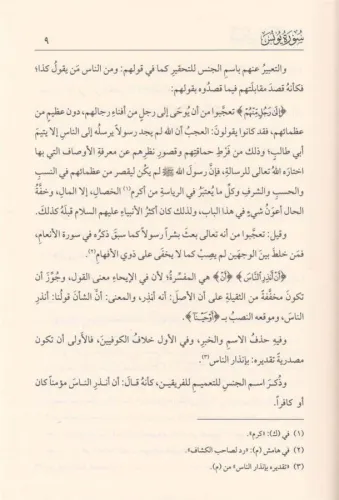 سُورَةُ يُونُسَ
٩
والتعبيرُ عنهم باسمِ الجنس للتحقيرِ كما في قولهم: ومن الناس مَن يقولُ كذا؛
فكأنهُ قصدَ مقابلتَهم فيما قصدُوه بقولهم:
﴿إِلَىٰ رَجُلٍ مِّنْهُمْ﴾ تعجَّبوا من أن يُوحَى إلى رجلٍ من أفناءِ رجالهم، دون عظيمٍ من
عظمائهم، فقد كانوا يقولونَ: العجبُ أن الله لم يجد رسولاً يرسلُه إلى الناسِ إلا يتيمَ
أبي طالبٍ؛ وذلك من فَرْطِ حماقتِهم وقصورِ نظرِهم عن معرفةِ الأوصاف التي بها
اختارَهُ اللهُ تعالى للرسالةِ، فإنَّ رسولَ اللهِ ﷺ لم يكن ليقصر من عظمائهم في النسبِ
والحسبِ والشرفِ وكلِّ ما يُعتبرُ في الرياسةِ من أكرمِ(١) الخصالِ، إلا المال، وخفَّةُ
الحال أعونُ شيءٍ في هذا الباب، ولذلك كان أكثرُ الأنبياءِ عليهم السلام قبلَهُ كذلك.
وقيل: تعجبُوا من أنه تعالى بعثَ بشراً رسولاً كما سبقَ ذكرُه في سورة الأنعام،
فمَن خلطَ بينَ الوجهَين لم يصِبْ كما لا يخفَى على ذوي الأفهام(٢).
﴿أَنْ أَنذِرِ النَّاسَ﴾ ﴿أَنْ﴾ هي المفسِّرةُ؛ لأن في الإيحاء معنى القول، وجُوِّزَ أن
تكونَ مخففةً من الثقيلةِ على أن الأصلَ: أنه أنذِر، والمعنى: أنَّ الشأنَ قولُنا: أَنذِرِ
الناسَ، وموقعه النصبُ بـ﴿أَوْحَيْنَا﴾.
وفيهِ حذفُ الاسم والخبرِ، وفي الأول خلافُ الكوفيين، فالأَولى أن تكون
مصدريةً تقديرُه: بإنذار الناس(٣).
وذُكرَ اسم الجنسِ للتعميمِ للفريقين، كأنهُ قالَ: أن أَنذرِ الناسَ مؤمناً كان
أو كافراً.
(١) في (ك): «كرم».
(٢) في هامش (م): «رد لصاحب الكشاف».
(٣) «تقديره بإنذار الناس» من (م).